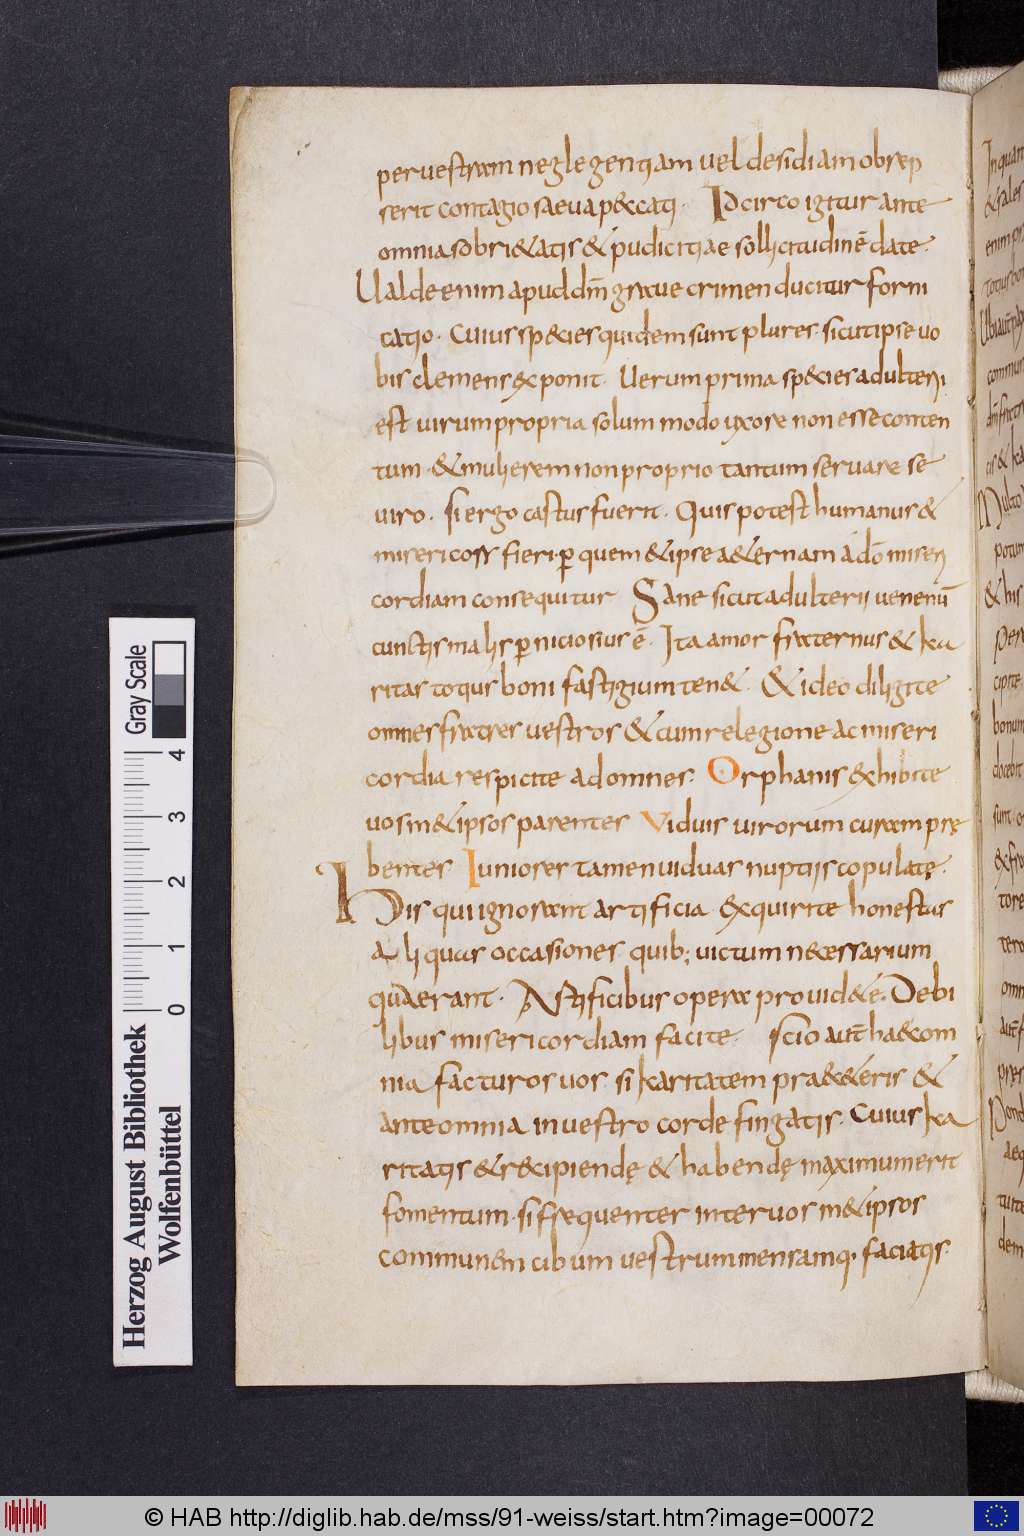 per vestram neglegentiam vel desidiam obrep
serit contagio saeva p&cati. Idcirco igitur ante
omnia sobri&atis & pudicitiae sollicitudinē date.
Ualde enim apud dm̄ grave crimen ducitur forni
catio. Cuius species quidem sunt plures. sicut ipse vo
bis clemens exponit. Uerum prima species adulterii
est virum propria solum modo uxore non esse conten
tum. & mulierem non proprio tantum servare se
viro. si ergo castus fuerit. Quis potest humanus &
misericors fieri. ꝑ quem & ipse a&ernam a dō miseri
cordiam consequitur Sane sicut adulterii venenū
cunctis malis ꝑniciosius ē. Ita amor fraternus & ka
ritas totius boni fastigium ten&. & ideo diligite
omnes fratres vestros & cum relegione ac miseri
cordia respicite ad omnes. Orphanis exhibite
vos m&ipsos parentes Viduis virorum curam prę
bentes Iuniores tamen viduas nuptiis copulatę.
His qui ignorant artificia exquirite honestas
aliquas occasiones quib; victum necessarium
quaerant. Artificibus opera provid&e. Debi
libus misericordiam facite. scio aut̄ haec om
nia facturos vos si karitatem prae&eris &
ante omnia in vestro corde fingatis. Cuius ka
ritatis & recipiendę & habendę maximum erit
fomentum. si frequenter inter vos m&ipsos
communem cibum vestrum mensamq; faciatis.
In quan
& sales
commun
Multo
potum
& his
Per
cipite
bonum
docebit
sunt. o
& fra
tore
omn
aut̄ f
pręs
dem
Gray Scale
4
3
2
1
0
Herzog August Bibliothek
Wolfenbüttel
© HAB http://diglib.hab.de/mss/91-weiss/start.htm?image=00072